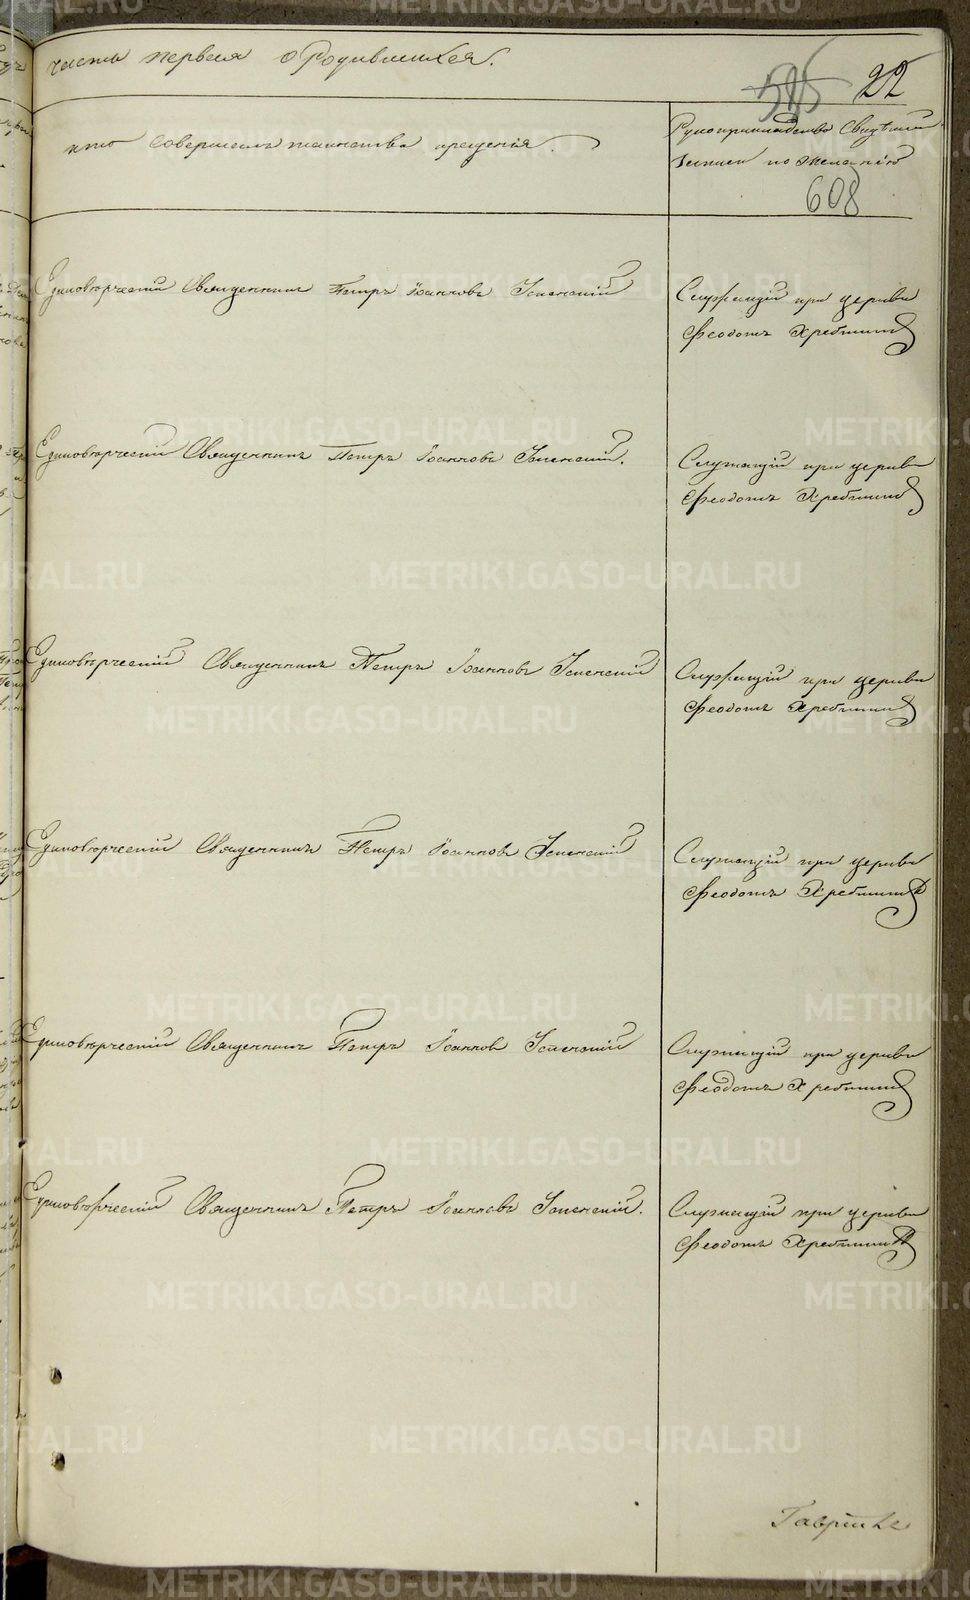 часть первая о Родившихся.
595 22
кто совершалъ таинство крещенія.
Рукоприкладство Свидѣтелей
записи по желанію
608
Единовѣрческій Священникъ Петръ Іоанновъ Успенскій
Служащій при церкви
Феодотъ Хребтинъ
Единовѣрческій Священникъ Петръ Іоанновъ Успенскій.
Служащій при церкви
Феодотъ Хребтинъ
Единовѣрческій Священникъ Петръ Іоанновъ Успенскій
Служащій при церкви
Феодотъ Хребтинъ
Единовѣрческій Священникъ Петръ Іоанновъ Успенскій
Служащій при церкви
Феодотъ Хребтинъ
Единовѣрческій Священникъ Петръ Іоаннов Успенскій
Служащій при церкви
Феодотъ Хребтинъ
Единовѣрческій Священникъ Петръ Іоанновъ Успенскій.
Служащій при церкви
Феодотъ Хребтинъ
METRIKI.GASO-URAL.RU